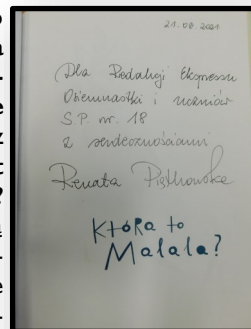 21.06.2021
Dla Redakcji Ekspressu
Osiemnastki i uczniów
S.P. nr. 18
z serdecznościami
Renata Piątkowska
KtóRa to
Malala?